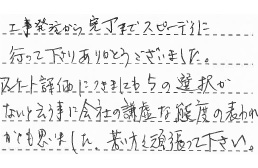 工事発注から完了までスピーディに
行って下さりありがとうございました。
アンケート評価につきましても5の選択が
ないと云う事に会社の謙虚な態度の表われ
かとも思いました、若い方々頑張って下さい。